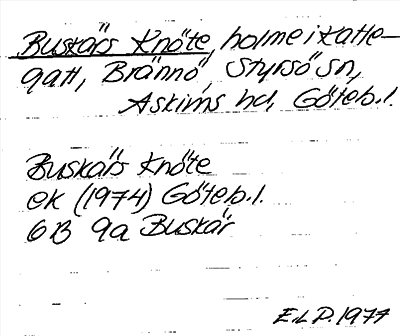 Buskärs Knöte, holme i Katte-
gatt, Brännö, Styrsö sn,
Askims hd, Göteb. l.
Buskärs Knöte
ek (1974) Göteb. l.
6B 9a Buskär
E.L.P. 1977